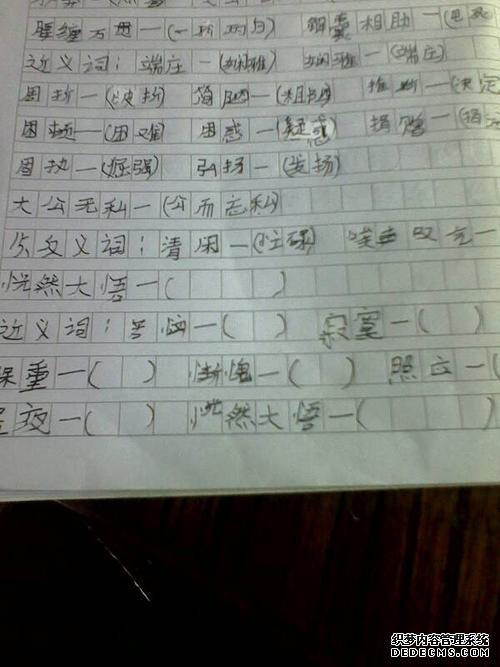 腰缠万贯—(一 囊相助—(
近义词：端庄—(娴雅) 娴雅—(端庄)
周折—(波折) 简陋—(粗陋) 推断—(决定
困顿—(困难) 困惑—(疑惑) 捐赠—(捐
固执—(倔强) 弘扬—(发扬)
大公无私—(公而忘私)
反义词：清闲—(忙碌) 唉声叹气—
恍然大悟—( )
近义词：苦恼—( ) 寂寞—( )
保重—( ) 惭愧—( ) 照应—(
夜—( ) 恍然大悟—( )
织梦内容管理系统
DEDECMS.COM